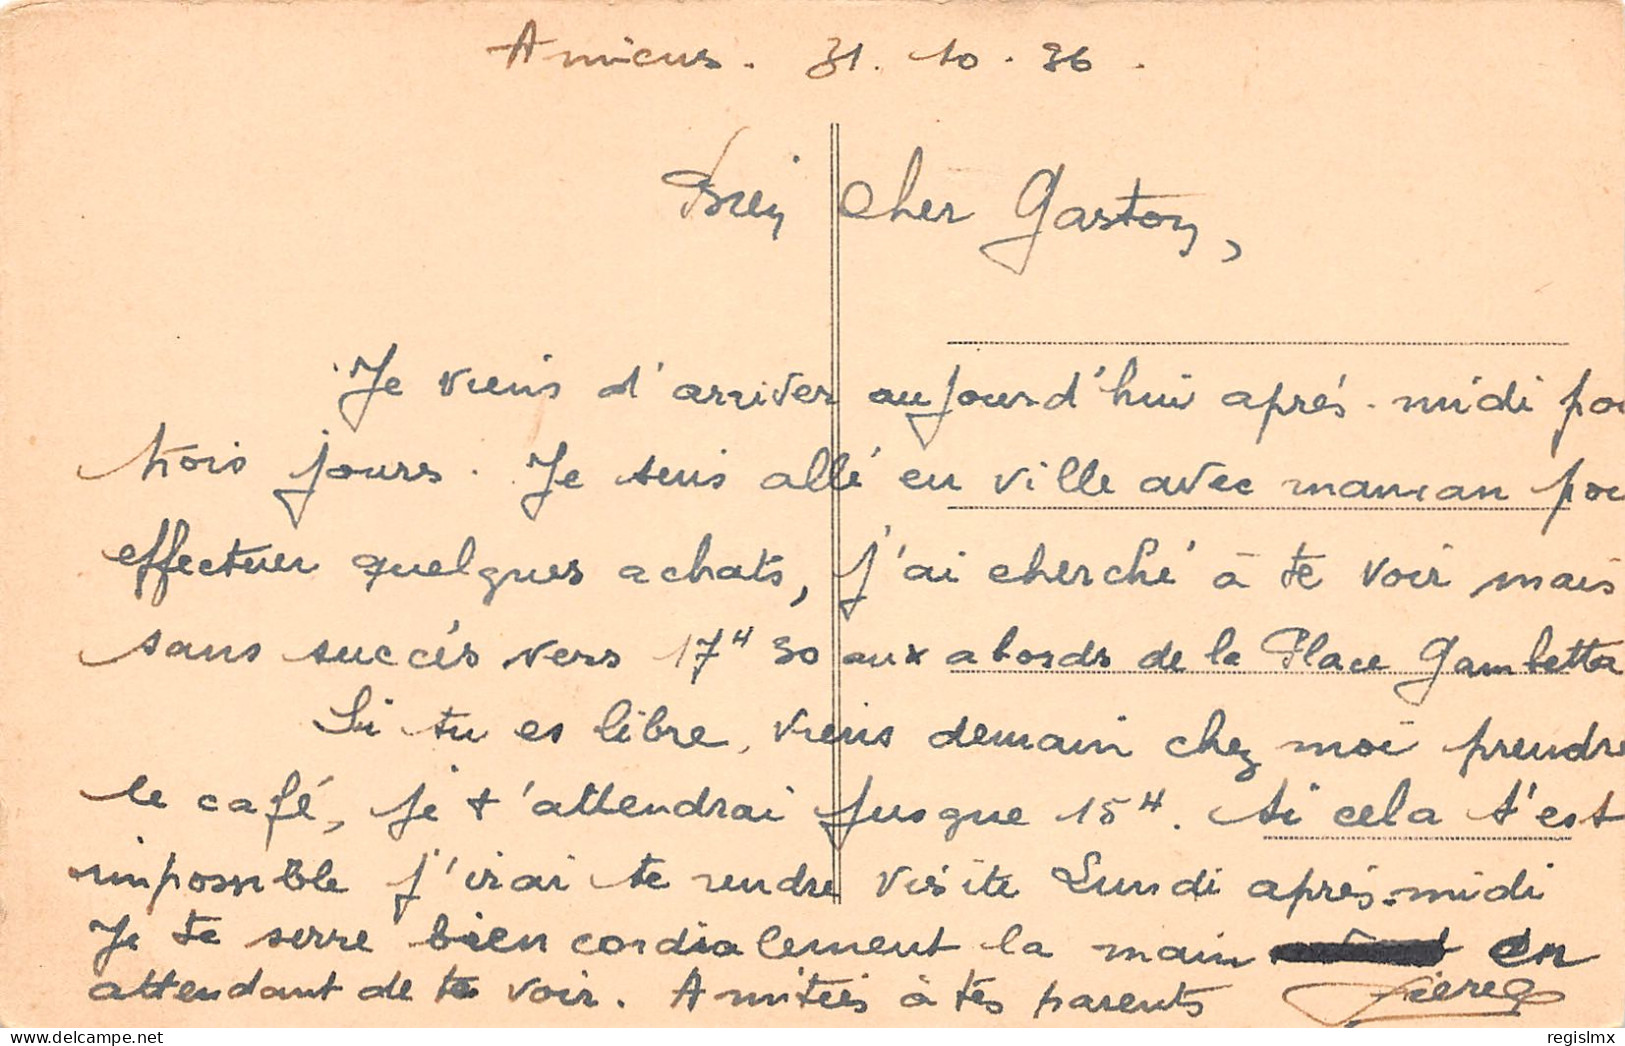 Amiens. 31. 10. 36.
Bien Cher Gaston,
Je viens d'arriver aujourd'hui après-midi pou
trois jours. Je suis allé en ville avec maman pou
effectuer quelques achats, j'ai cherché à te voir mais
sans succès vers 17H 30 aux abords de la Place Gambetta
Si tu es libre, viens demain chez moi prendre
le café, je t'attendrai jusque 15H. Si cela t'est
impossible j'irai te rendre visite Lundi après-midi
Je te serre bien cordialement la main en
attendant de te voir. Amitiés à tes parents Pierre
regislmx